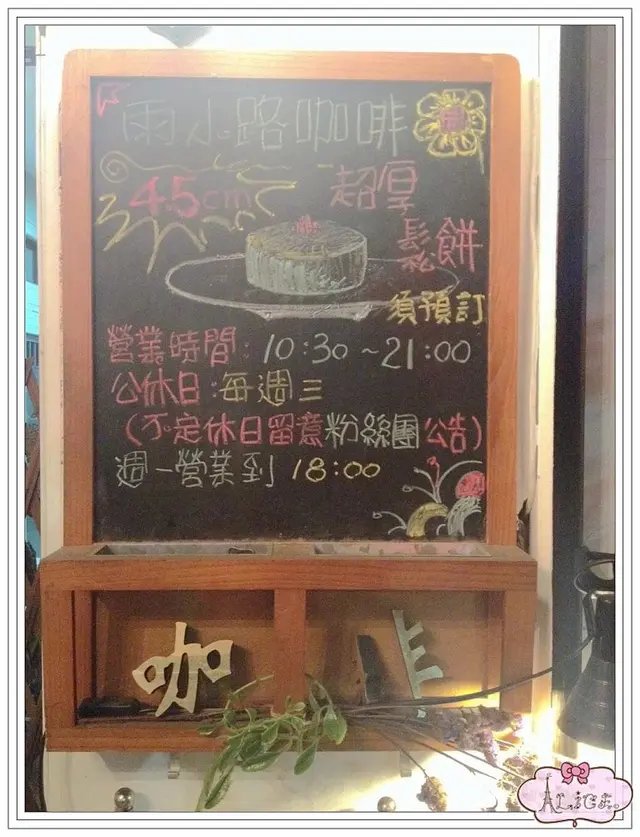 雨小路咖啡
4.5cm 超厚
鬆餅
須預訂
營業時間: 10:30~21:00
公休日:每週三
(不定休日留意粉絲團公告)
週一營業到 18:00
咖
ALICE.